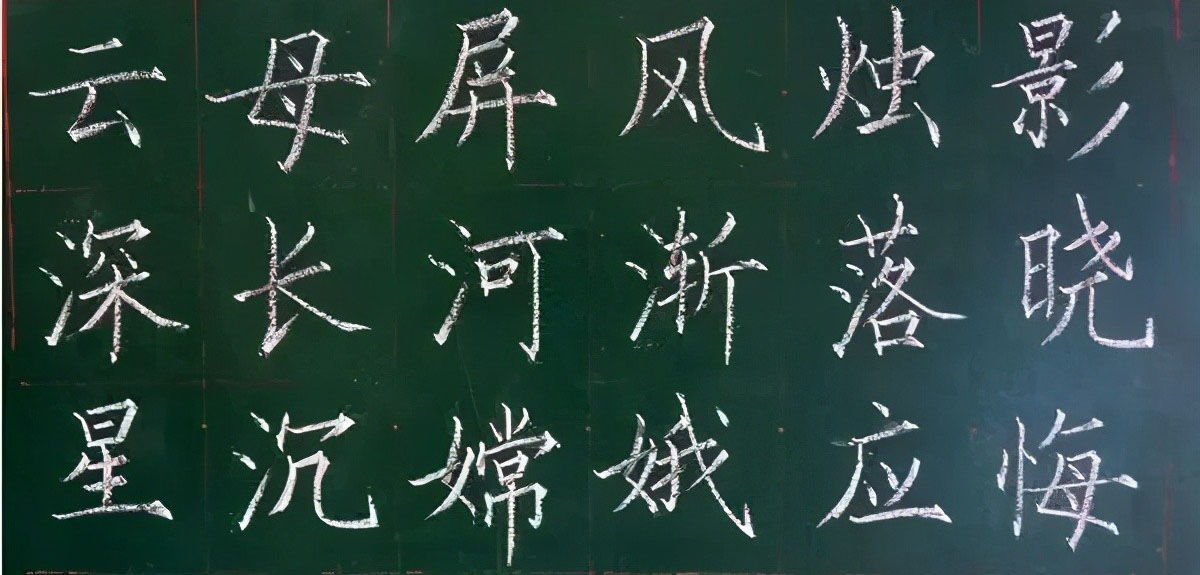 云母屏风烛影
深长河渐落晓
星沉嫦娥应悔